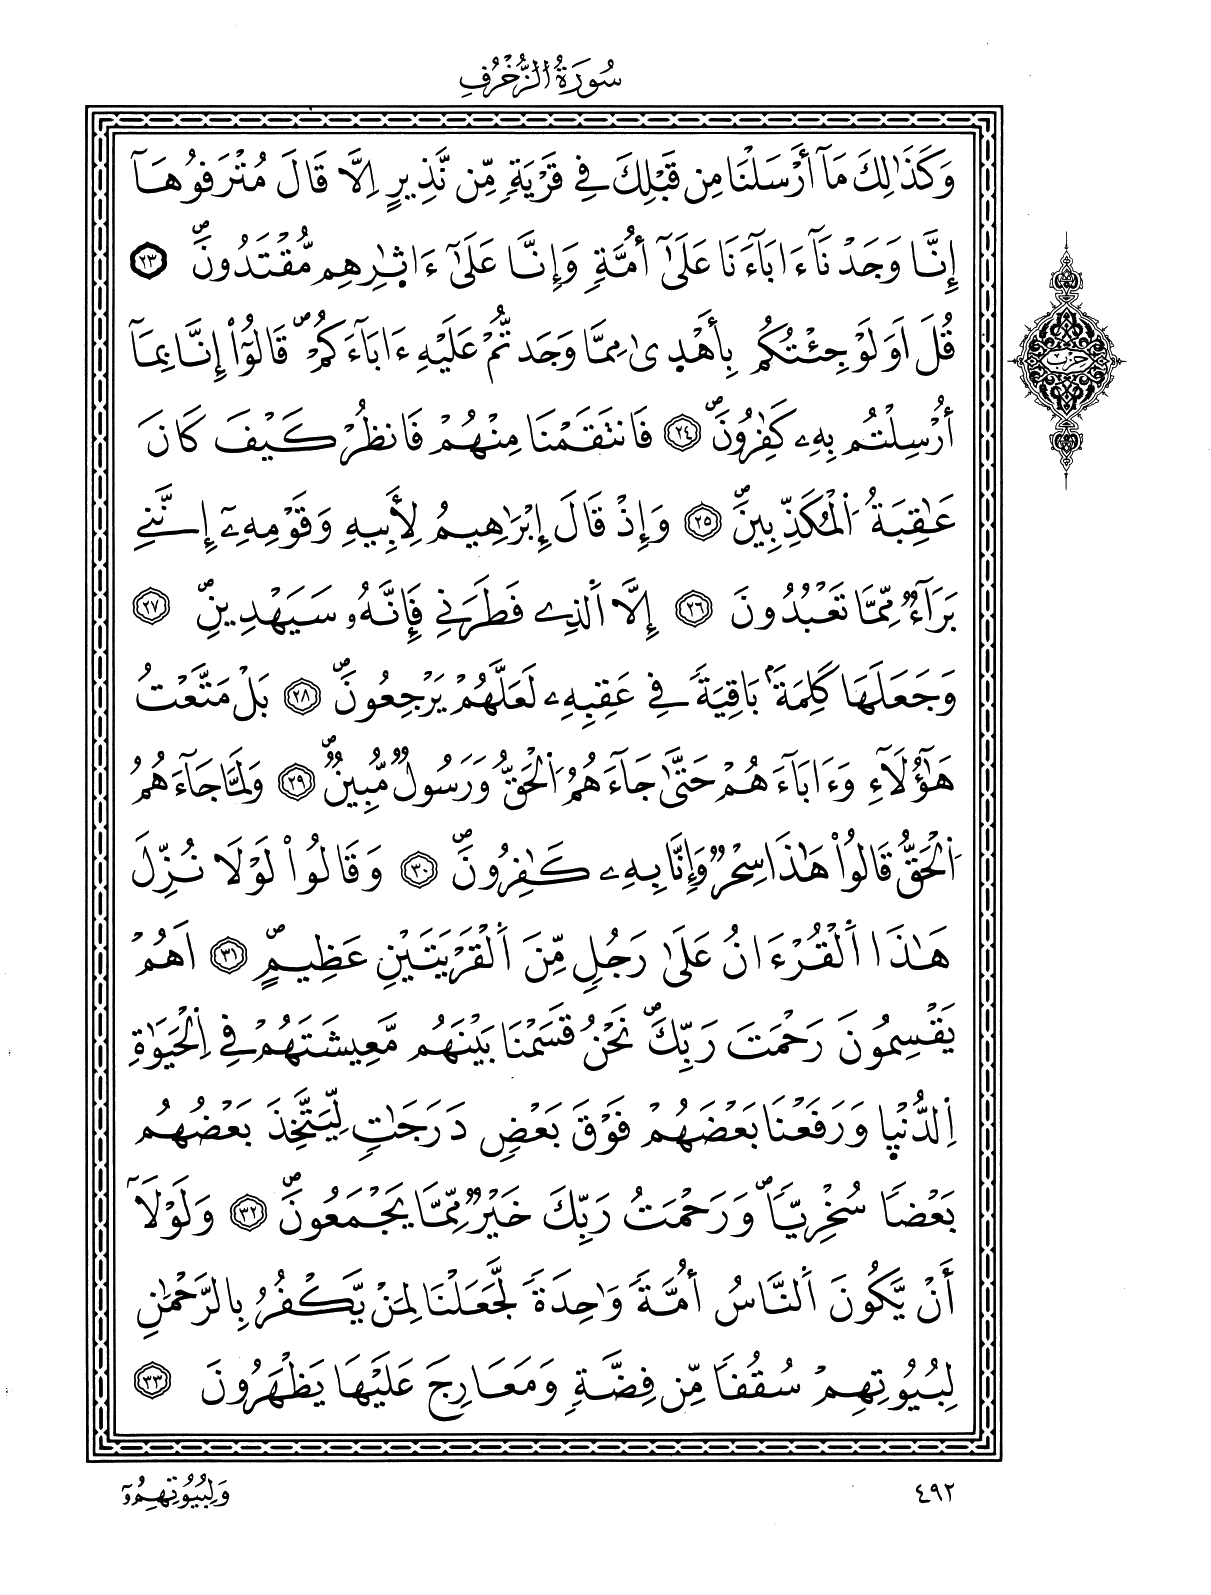 سُورَةُ الزُّخْرُفِ
وَكَذَٰلِكَ مَآ أَرْسَلْنَا مِن قَبْلِكَ فِي قَرْيَةٍ مِّن نَّذِيرٍ اِلَّا قَالَ مُتْرَفُوهَآ
إِنَّا وَجَدْنَآ ءَابَآءَنَا عَلَىٰٓ أُمَّةٍ وَإِنَّا عَلَىٰٓ ءَاثٰ۪رِهِم مُّقْتَدُونَۖ ٢٣
قُلَ اَوَلَوْ جِئْتُكُم بِأَهْد۪ىٰ مِمَّا وَجَدتُّمْ عَلَيْهِ ءَابَآءَكُمْۖ قَالُوٓاْ إِنَّا بِمَآ
أُرْسِلْتُم بِهِۦ كَٰفِرُونَۖ ٢٤ فَانتَقَمْنَا مِنْهُمْ فَانظُرْ كَيْفَ كَانَ
عَٰقِبَةُ اُ۬لْمُكَذِّبِينَۖ ٢٥ وَإِذْ قَالَ إِبْرَٰهِيمُ لِأَبِيهِ وَقَوْمِهِۦٓ إِنَّنِے
بَرَآءٌ مِّمَّا تَعْبُدُونَ ٢٦ إِلَّا اَ۬لذِے فَطَرَنِي فَإِنَّهُۥ سَيَهْدِينِۖ ٢٧
وَجَعَلَهَا كَلِمَةَۢ بَاقِيَةً فِي عَقِبِهِۦ لَعَلَّهُمْ يَرْجِعُونَۖ ٢٨ بَلْ مَتَّعْتُ
هَٰٓؤُلَآءِ وَءَابَآءَهُمْ حَتَّىٰ جَآءَهُمُ اُ۬لْحَقُّ وَرَسُولٌ مُّبِينٌۖ ٢٩ وَلَمَّا جَآءَهُمُ
اُ۬لْحَقُّ قَالُواْ هَٰذَا سِحْرٌ وَإِنَّا بِهِۦ كَٰفِرُونَۖ ٣٠ وَقَالُواْ لَوْلَا نُزِّلَ
هَٰذَا اَ۬لْقُرْءَانُ عَلَىٰ رَجُلٍ مِّنَ اَ۬لْقَرْيَتَيْنِ عَظِيمٍۖ ٣١ اَهُمْ
يَقْسِمُونَ رَحْمَتَ رَبِّكَۖ نَحْنُ قَسَمْنَا بَيْنَهُم مَّعِيشَتَهُمْ فِي اِ۬لْحَيَوٰةِ
اِ۬لدُّنْي۪ا وَرَفَعْنَا بَعْضَهُمْ فَوْقَ بَعْضٍ دَرَجَٰتٍ لِّيَتَّخِذَ بَعْضُهُم
بَعْضاً سُخْرِيّاًۖ وَرَحْمَتُ رَبِّكَ خَيْرٌ مِّمَّا يَجْمَعُونَۖ ٣٢ وَلَوْلَآ
أَنْ يَّكُونَ اَ۬لنَّاسُ أُمَّةً وَٰحِدَةً لَّجَعَلْنَا لِمَنْ يَّكْفُرُ بِالرَّحْمَٰنِ
لِبُيُوتِهِمْ سُقُفاً مِّن فِضَّةٍ وَمَعَارِجَ عَلَيْهَا يَظْهَرُونَ ٣٣
حزب
٤٩٢
وَلِبُيُوتِهِمُۥٓ